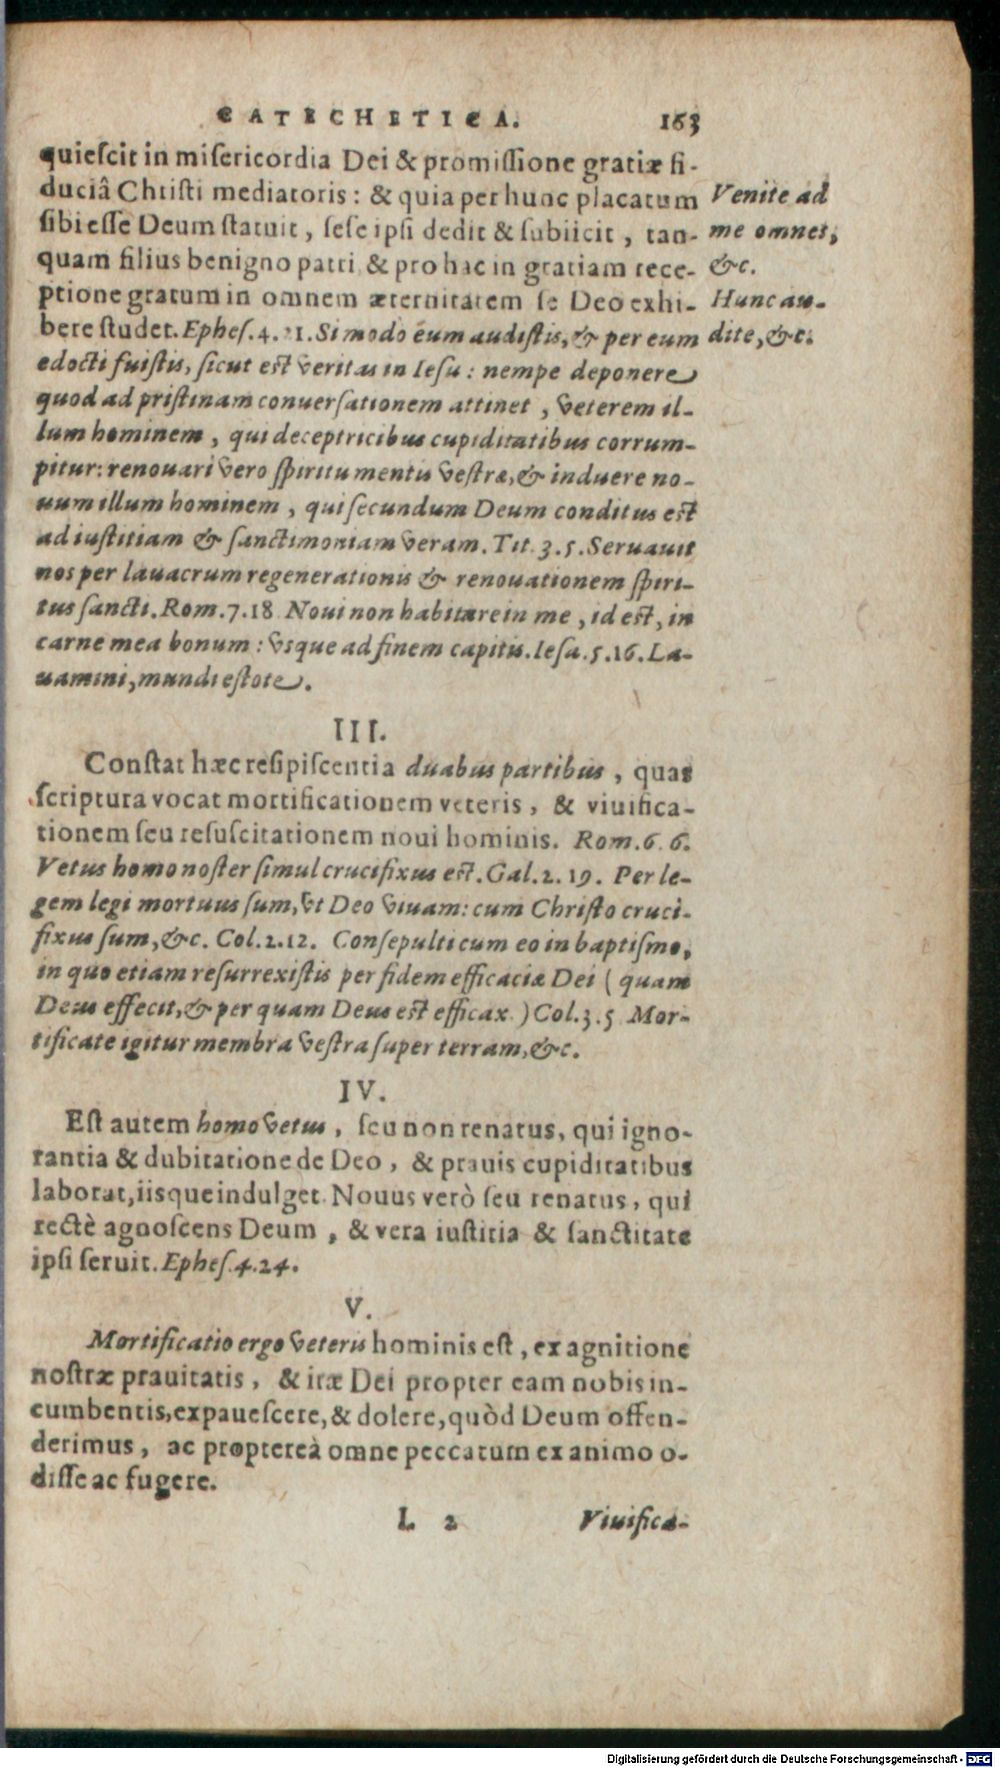 CATECHETICA. 163
quieſcit in miſericordia Dei & promiſſione gratiæ fi-
duciâ Chriſti mediatoris: & quia per hunc placatum
ſibi eſſe Deum ſtatuit, ſeſe ipſi dedit & ſubiicit, tan-
quam filius benigno patri, & pro hac in gratiam rece-
ptione gratum in omnem æternitatem ſe Deo exhi-
bere ſtudet. Epheſ. 4. 21. Si modo eum audiſtis, & per eum
edocti fuiſtis, ſicut eſt veritas in Ieſu: nempe deponere
quod ad priſtinam conuerſationem attinet, veterem il-
lum hominem, qui deceptricibus cupiditatibus corrum-
pitur: renouari vero ſpiritu mentis veſtræ, & induere no-
uum illum hominem, qui ſecundum Deum conditus eſt
ad iuſtitiam & ſanctimoniam veram. Tit. 3. 5. Seruauit
nos per lauacrum regenerationis & renouationem ſpiri-
tus ſancti. Rom. 7. 18 Noui non habitare in me, id eſt, in
carne mea bonum: vsque ad finem capitis. Ieſa. 5. 16. La-
uamini, mundi eſtote.
Venite ad
me omnes,
&c.
Hunc au-
dite, &c.
III.
Conſtat hæc reſipiſcentia duabus partibus, quas
ſcriptura vocat mortificationem veteris, & viuifica-
tionem ſeu reſuſcitationem noui hominis. Rom. 6. 6.
Vetus homo noſter ſimul crucifixus eſt. Gal. 2. 19. Per le-
gem legi mortuus ſum, vt Deo viuam: cum Chriſto cruci-
fixus ſum, &c. Col. 2. 12. Conſepulti cum eo in baptiſmo,
in quo etiam reſurrexiſtis per fidem efficaciæ Dei (quam
Deus effecit, & per quam Deus eſt efficax.) Col. 3. 5 Mor-
tificate igitur membra veſtra ſuper terram, &c.
IV.
Eſt autem homo vetus, ſeu non renatus, qui igno-
rantia & dubitatione de Deo, & prauis cupiditatibus
laborat, iisque indulget. Nouus verò ſeu renatus, qui
rectè agnoſcens Deum, & vera iuſtitia & ſanctitate
ipſi ſeruit. Epheſ. 4. 24.
V.
Mortificatio ergo veteris hominis eſt, ex agnitione
noſtræ prauitatis, & iræ Dei propter eam nobis in-
cumbentis, expaueſcere, & dolere, quòd Deum offen-
derimus, ac proptereà omne peccatum ex animo o-
diſſe ac fugere.
L 2 Viuifica-
Digitalisierung gefördert durch die Deutsche Forschungsgemeinschaft - DFG